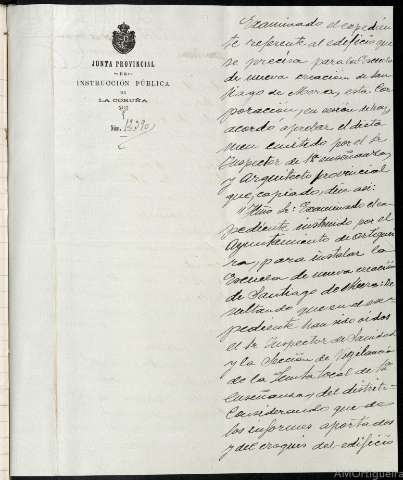 JUNTA PROVINCIAL
DE
INSTRUCCIÓN PÚBLICA
DE
LA CORUÑA
Núm. 12290
Examinado el expedien-
te referente al edificio que
se precisa para la Escuela
de nueva creación de San-
tiago de Mera, esta Cor-
poración, en sesión de hoy,
acordó aprobar el dicta-
men emitido por el Sr.
Inspector de 1ª enseñanza,
y Arquitecto provincial
que, copiado, dice así:
Iltmo Sr: Examinado el ex-
pediente instruido por el
Ayuntamiento de Ortiguei-
ra, para instalar la
Escuela de nueva creación
de Santiago de Mera: Re-
sultando que en dicho ex-
pediente han sido oidos
el Sr Inspector de Sanidad
y la Sección de Vigilancia
de la Junta local de 1ª
Enseñanza, del distrito:
Considerando que de
los informes aportados
y del croquis del edificio
AMOrtigueira